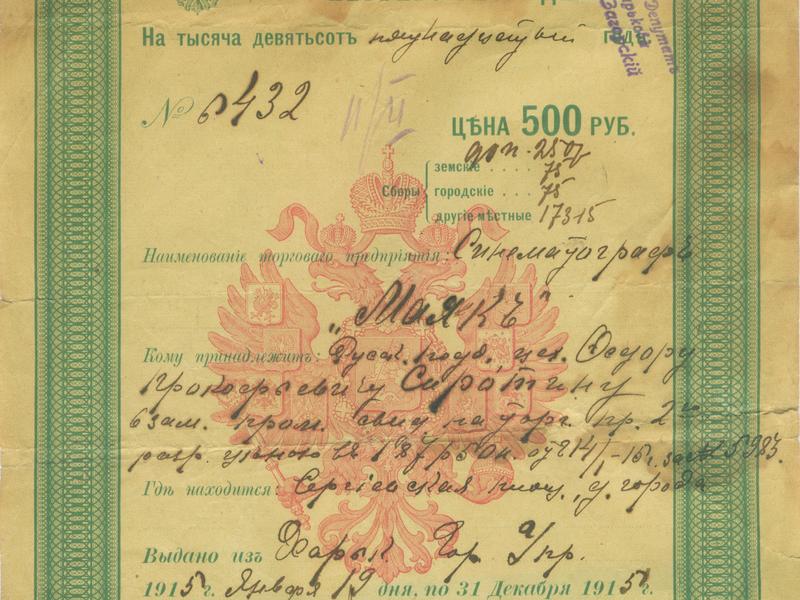 На тысяча девятьсотъ пятнадцатый годъ
Депутатъ
Загорскій
№ 6432
II/II
ЦѢНА 500 РУБ.
доп. 250р
Сборы
земскіе .... 75
городскіе ... 75
другіе мѣстные 17315
Наименованіе торговаго предпріятія: Синематографъ
„Маякъ"
Кому принадлежитъ: Русск. подд. Федору
Прокофьевичу Сиротину
взам. пром. свид. на торг. пр. 2го
разр. цѣною въ 187 р 50 к. отъ 14/I-15 г. за № 5983.
Гдѣ находится: Сергіевская площ. д. города
Выдано изъ Харьк. Гор. Упр.
1915 г. Января 19 дня, по 31 Декабря 1915 г.